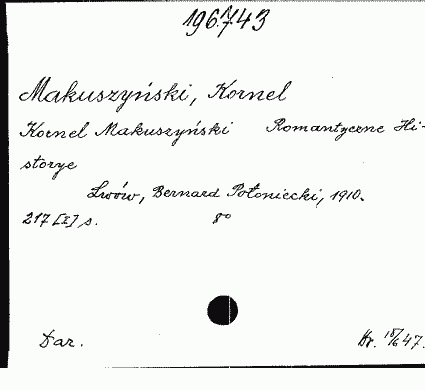 196743
Makuszyński, Kornel
Kornel Makuszyński Romantyczne Hi-
storye
Lwów, Bernard Połoniecki, 1910.
217 [I] s. 8°
Dar. 47.